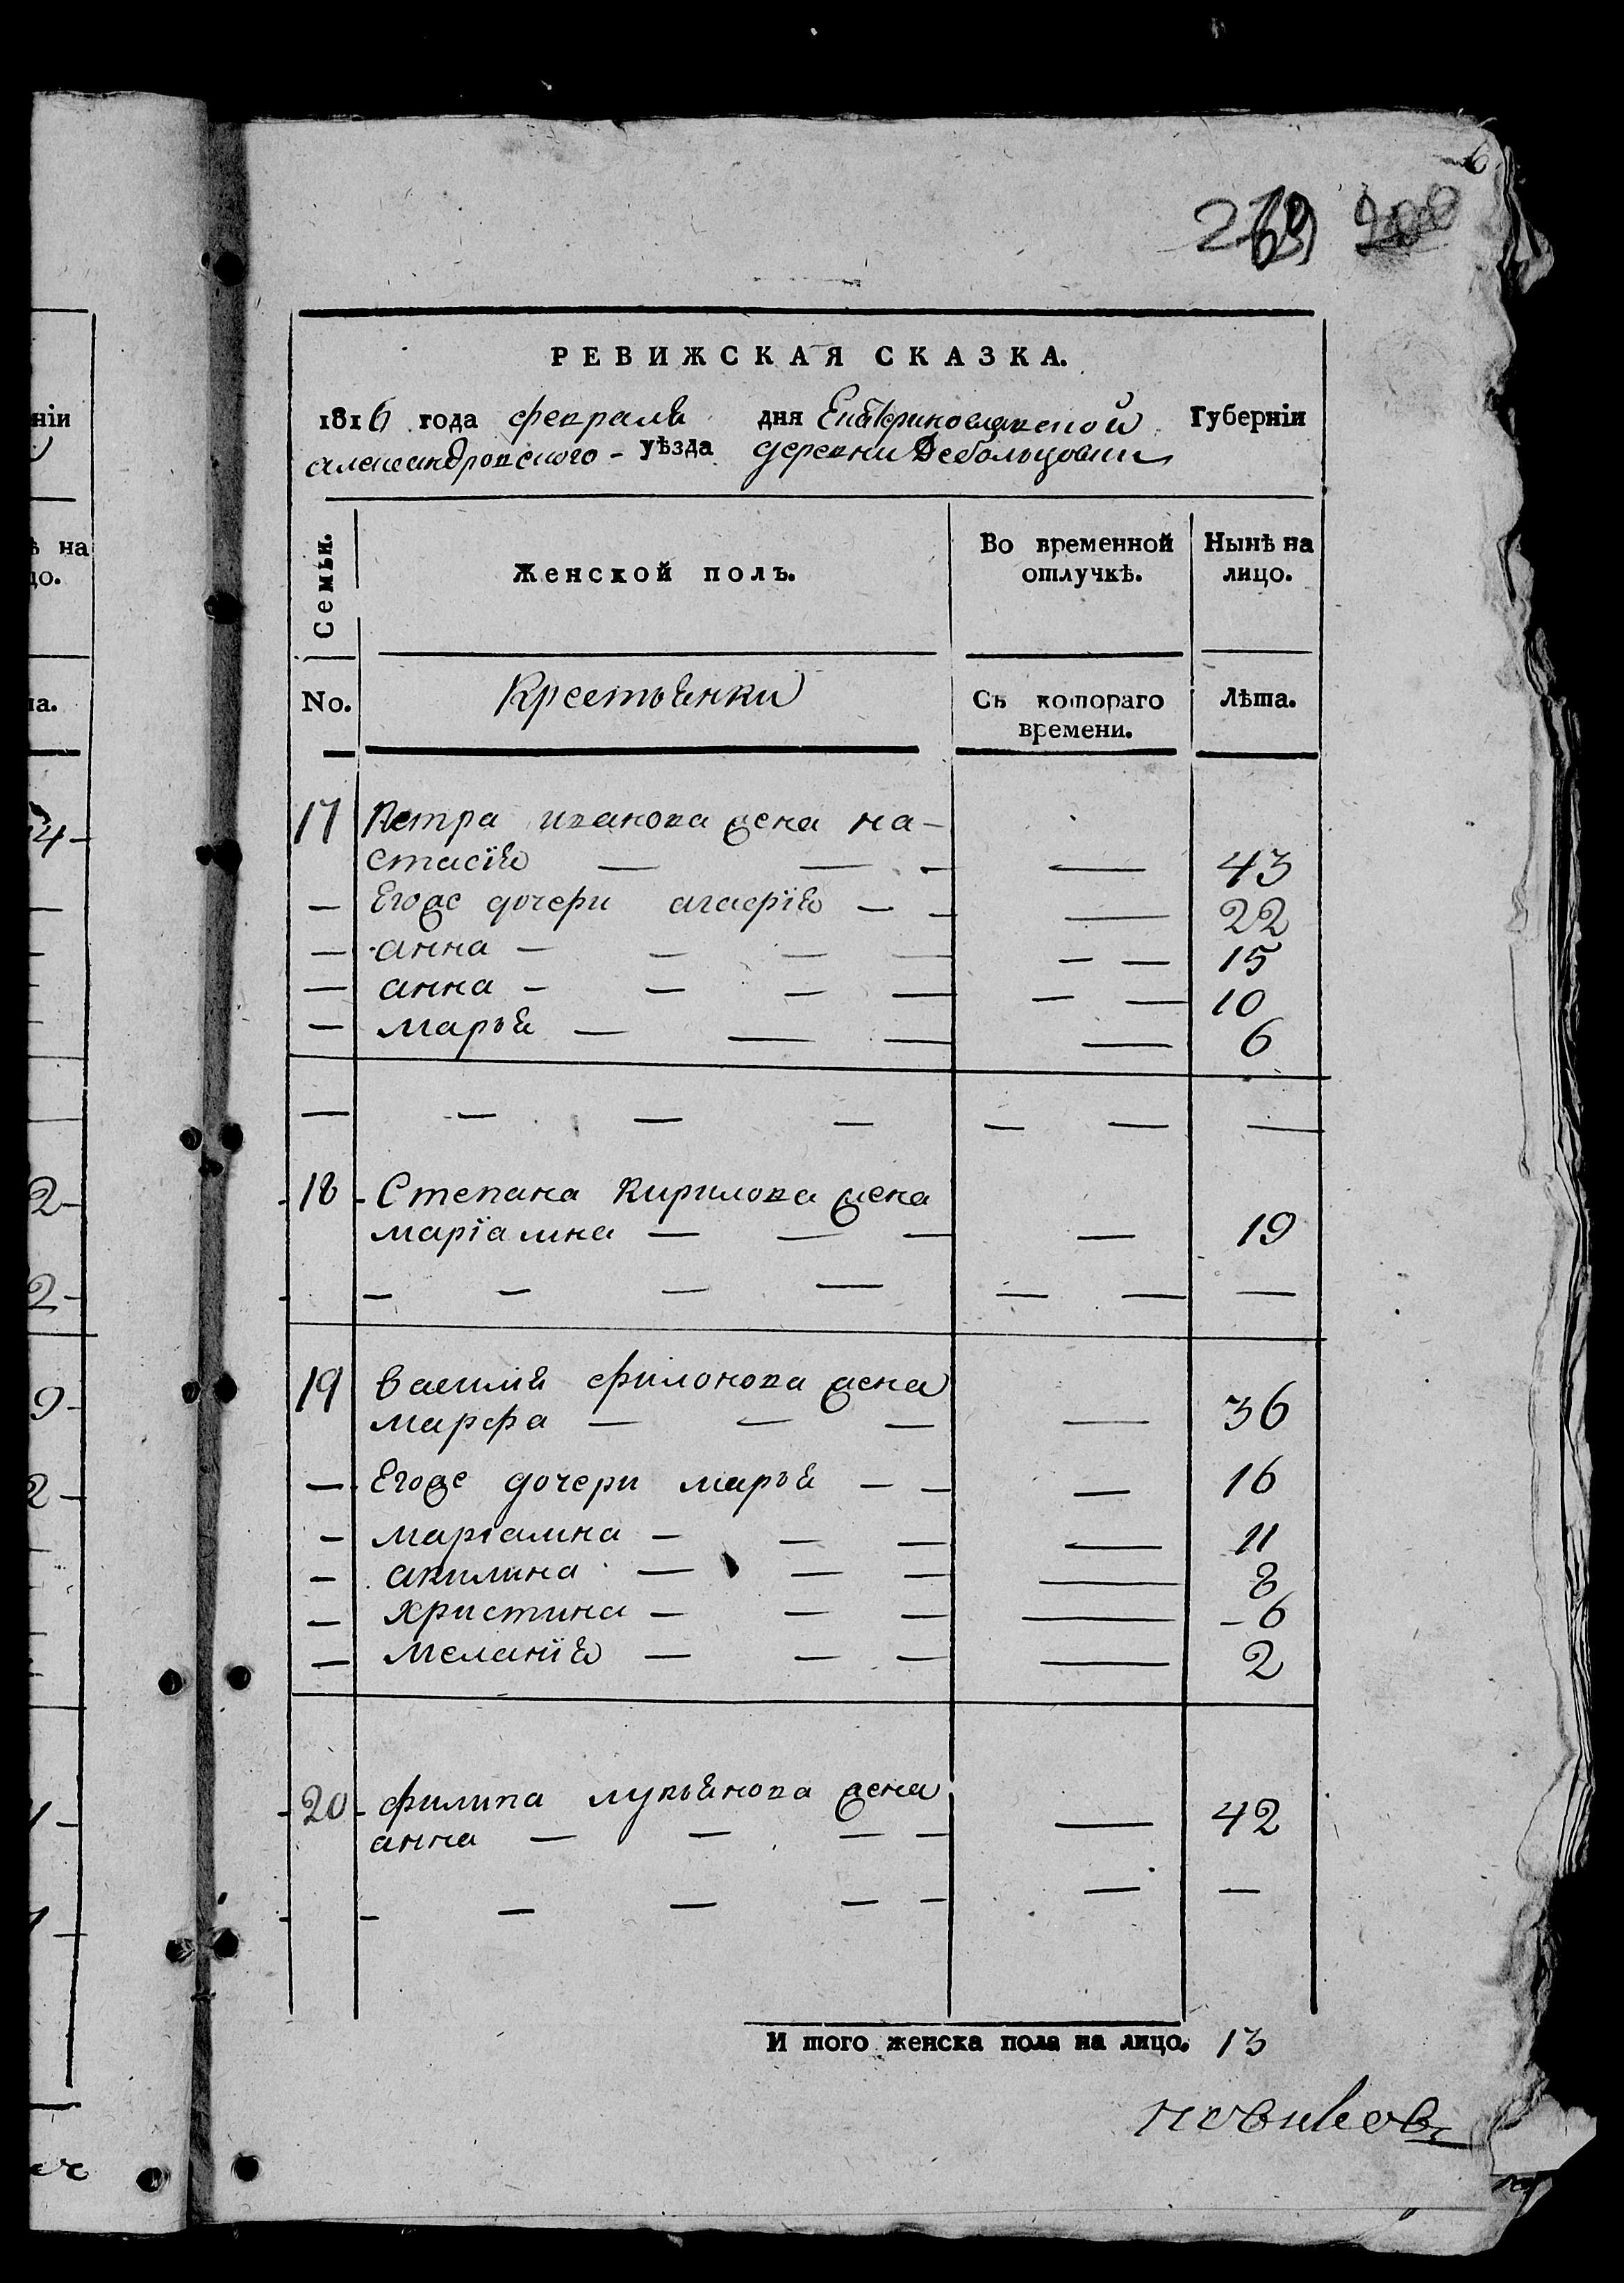 РЕВИЖСКАЯ СКАЗКА.
1816 года февраля дня Екатѣринославской Губерніи
александровского - уѣзда деревни Дебольцовки
Семьи.
Женской полъ.
Во временной отлучкѣ.
Нынѣ на лицо.
No.
Крестьянки
Съ котораго времени.
Лѣта.
17 Петра иванова жена на-
стасїя — — - — 43
— Егоже дочери агафїя — - — 22
— анна — — — — — — 15
— анна - — — — — — 10
— марья — — — — 6
— — — — — — —
18 Степана Кирилова жена
марїамна — — — — 19
- - — — — — —
19 василия филонова жена
марфа — — — — 36
— Егоже дочери марья — - — 16
- марїамна - — — — 11
- акилина — — — — 8
- христина - — — — - 6
— меланїя — — — — 2
20 филипа лукьянова жена
анна — — — - — 42
- — — — - — —
И того женска пола на лицо. 13
новиковъ
ніи
ѣ на
до.
та.
4 -
2 -
2 -
9 -
2 -